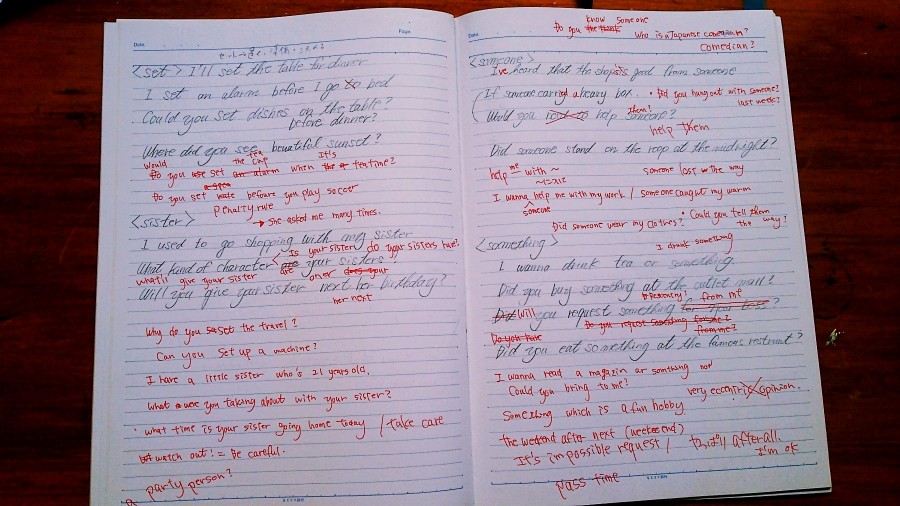 Date
Page
<set> I'll set the table for dinner
I set an alarm before I go to bed
Could you set dishes on the table?
before dinner?
Where did you see beautiful sunset?
Would the tea It's
Do you set alarm when the teatime?
Do you set before you play soccer
penalty rule
<sister> → She asked me many times.
I used to go shopping with my sister
Is your sister do your sisters have?
What kind of character are your sisters?
what'll give your sister are
Will you give your sister next her birthday?
her next
Why do you set the travel?
Can you set up a machine?
I have a little sister who's 21 years old.
What are you taking about with your sister?
what time is your sister going home today / take care
watch out! = Be careful.
party person?
Date
know someone
Do you the think who is a Japanese comedian?
comedian?
<someone>
I've heard that the shop is good from someone
If someone carried a heavy box. • Did you hung out with someone?
last week?
Would you help someone?
them?
help them
Did someone stand on the roop at the midnight?
help me with ~ someone lost the way
I wanna help me with my work / someone caught my warm
someone
Did someone wear my clothes? • Could you tell them
the way?
<something> I drink something
I wanna drink tea or something.
Did you buy something at the outlet mall?
from me
Will you request something for your boss?
Do you request something for me?
Do you have from me?
Did you eat something at the famous restrunt?
I wanna read a magazin or somthing
Could you bring to me?
very eccentric opinion.
Something which is a fun hobby
the weekend after next (weekeend)
It's impossible request /
after all.
I'm ok
pass time